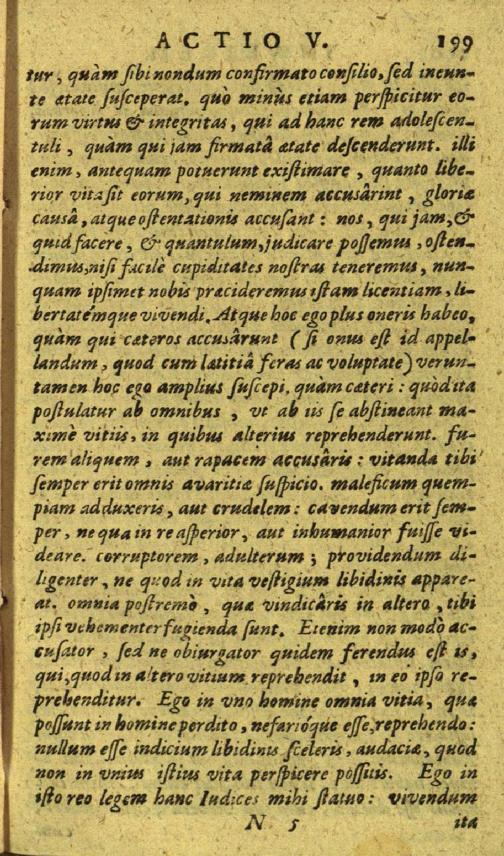 ACTIO V. 199
tur, quàm sibi nondum confirmato consilio, sed ineun-
te ætate susceperat. quò minùs etiam perspicitur eo-
rum virtus & integritas, qui ad hanc rem adolescen-
tuli, quàm qui jam firmatâ ætate descenderunt. illi
enim, antequam potuerunt existimare, quanto libe-
rior vita sit eorum, qui neminem accusârint, gloriæ
causâ, atque ostentationis accusant: nos, qui jam, &
quid facere, & quantulum, judicare possemus, osten-
dimus, nisi facilè cupiditates nostras teneremus, nun-
quam ipsimet nobis præcideremus istam licentiam, li-
bertatémque vivendi. Atque hoc ego plus oneris habeo,
quàm qui cæteros accusârunt (si onus est id appel-
landum, quod cum lætitiâ feras ac voluptate) verun-
tamen hoc ego amplius suscepi, quàm cæteri: quòd ita
postulatur ab omnibus, vt ab iis se abstineant ma-
ximè vitiis, in quibus alterius reprehenderunt. fu-
rem aliquem, aut rapacem accusâris: vitanda tibi
semper erit omnis avaritiæ suspicio. maleficum quem-
piam adduxeris, aut crudelem: cavendum erit sem-
per, ne qua in re asperior, aut inhumanior fuisse vi-
deare. corruptorem, adulterum; providendum di-
ligenter, ne quod in vita vestigium libidinis appare-
at. omnia postremò, quæ vindicâris in altero, tibi
ipsi vehementer fugienda sunt. Etenim non modò ac-
cusator, sed ne obiurgator quidem ferendus est is,
qui, quod in altero vitium reprehendit, in eo ipso re-
prehenditur. Ego in vno homine omnia vitia, quæ
possunt in homine perdito, nefarióque esse, reprehendo:
nullum esse indicium libidinis sceleris, audaciæ, quod
non in vnius istius vita perspicere possitis. Ego in
isto reo legem hanc Iudices mihi statuo: vivendum
N 5 ita